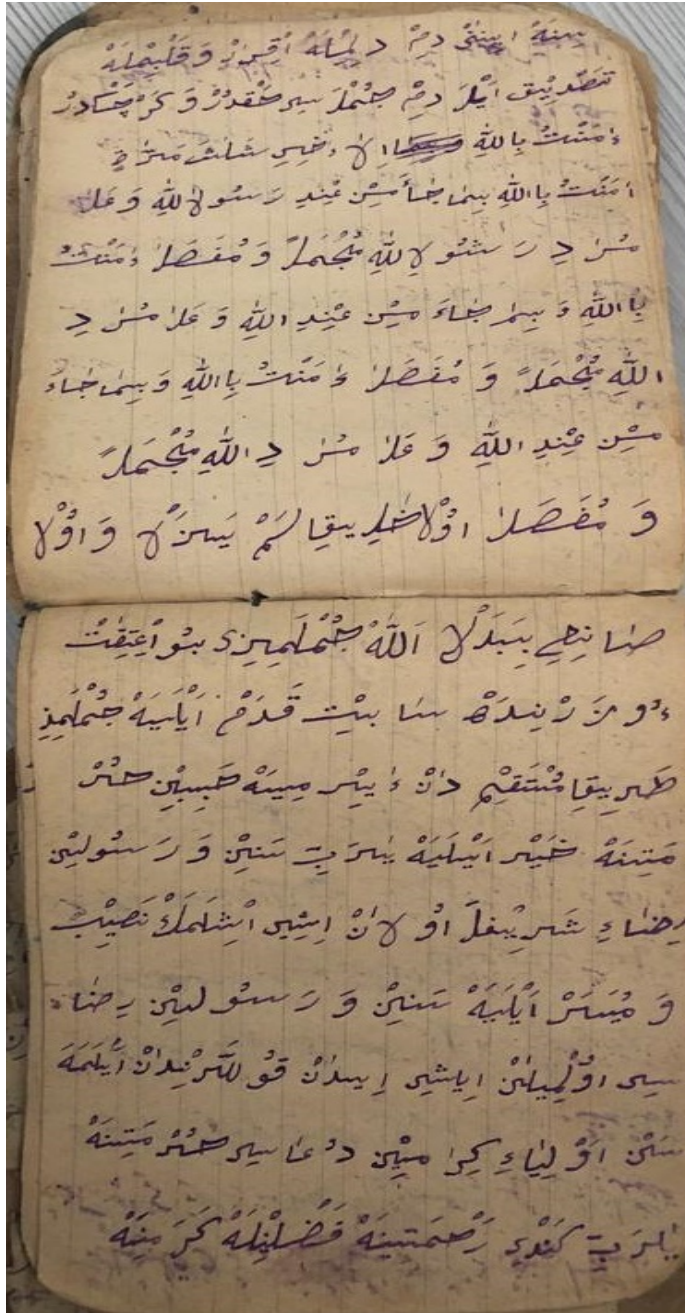 دِلِمْلَهْ اِقْرَرْ وَ قَلْبِمْلَهْ
تَصْدِيق اَيْلَرَ دِمْ جُمْلَ سِر حَقْدُرْ وَ كَرَ جَكْدُرْ
ءَامَنْتُ بِاللّٰهِ اِلاَ ءَخِرِ
ءَامَنْتُ بِااللّٰهِ بِمَا جَاأَ مِنْ عِنْدِ رَسُولاللّٰهِ وَ عَلَا
مُرَا دِ رَ سُو لِاللّٰهِ مُجْمَلاً وَ مُفَصَلاَ ءَامَنْتُ
بِااللّٰهِ وَ بِمَا جَاءَ مِنْ عِنْدِ اللّٰهِ وَ عَلَا مُرَا دِ
اللّٰهِ مُجْمَلاً وَ مُفَصَلاَ ءَامَنْتُ بِااللّٰهِ وَ بِمَا جَاءَ
مِنْ عِنْدِ اللّٰهِ وَ عَلَا مُرَا دِ اللّٰهِ مُجْمَلاً
وَ مُفَصَلاَ اوُلْا خَلِيقِ لَمْ يَزَلْا وَ اوُلْا
صَانِعِ بِبَدَلْا اَللّٰهْ جُمْلَمِيزِى بُو اِعْتِقَتْ
ءُو زَ رْيِنْدَهْ سَا بِيتْ قَدَمْ اَيْلَيَهْ جُمْلَمِيذِ
طَرِيقِ مُسْتَقِمْ دَانْ ءَايِرْمِيَهْ حَبِيبِينْ حُرْ
مَتِنَهْ خَيْر اَيْلَيَهْ يَارَبِ سَنِنْ وَ رَسُولِينْ
رِضَاءِ شَرِيفلَ اوُ لَانْ اِيشِى اِشْلَمَكْ نَصِيبْ
وَ مُيَسَرْ اَيْلَيَهْ سَنِنْ وَ رَسُولِينْ رِضَاءِ
سِى اوُلْمِيَانْ اِيشِى اِيدَانْ قوُللَرْنِدَانْ اَيْلَمَهَ
سَنِنْ اَوْلِيَاءِ كِرَا مِينْ دُعَا سِى حُرْمَتِنَهْ
يَارَبِ كَنْدِى رَحْمَتِينَهْ فَضْلِنْلَهْ كَرَ مِنَهْ